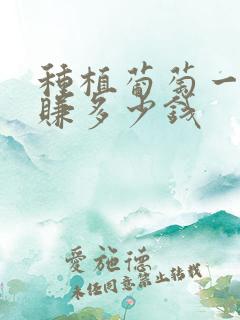 種植葡萄一
賺多少錢
愛施德
未經同意禁止轉載